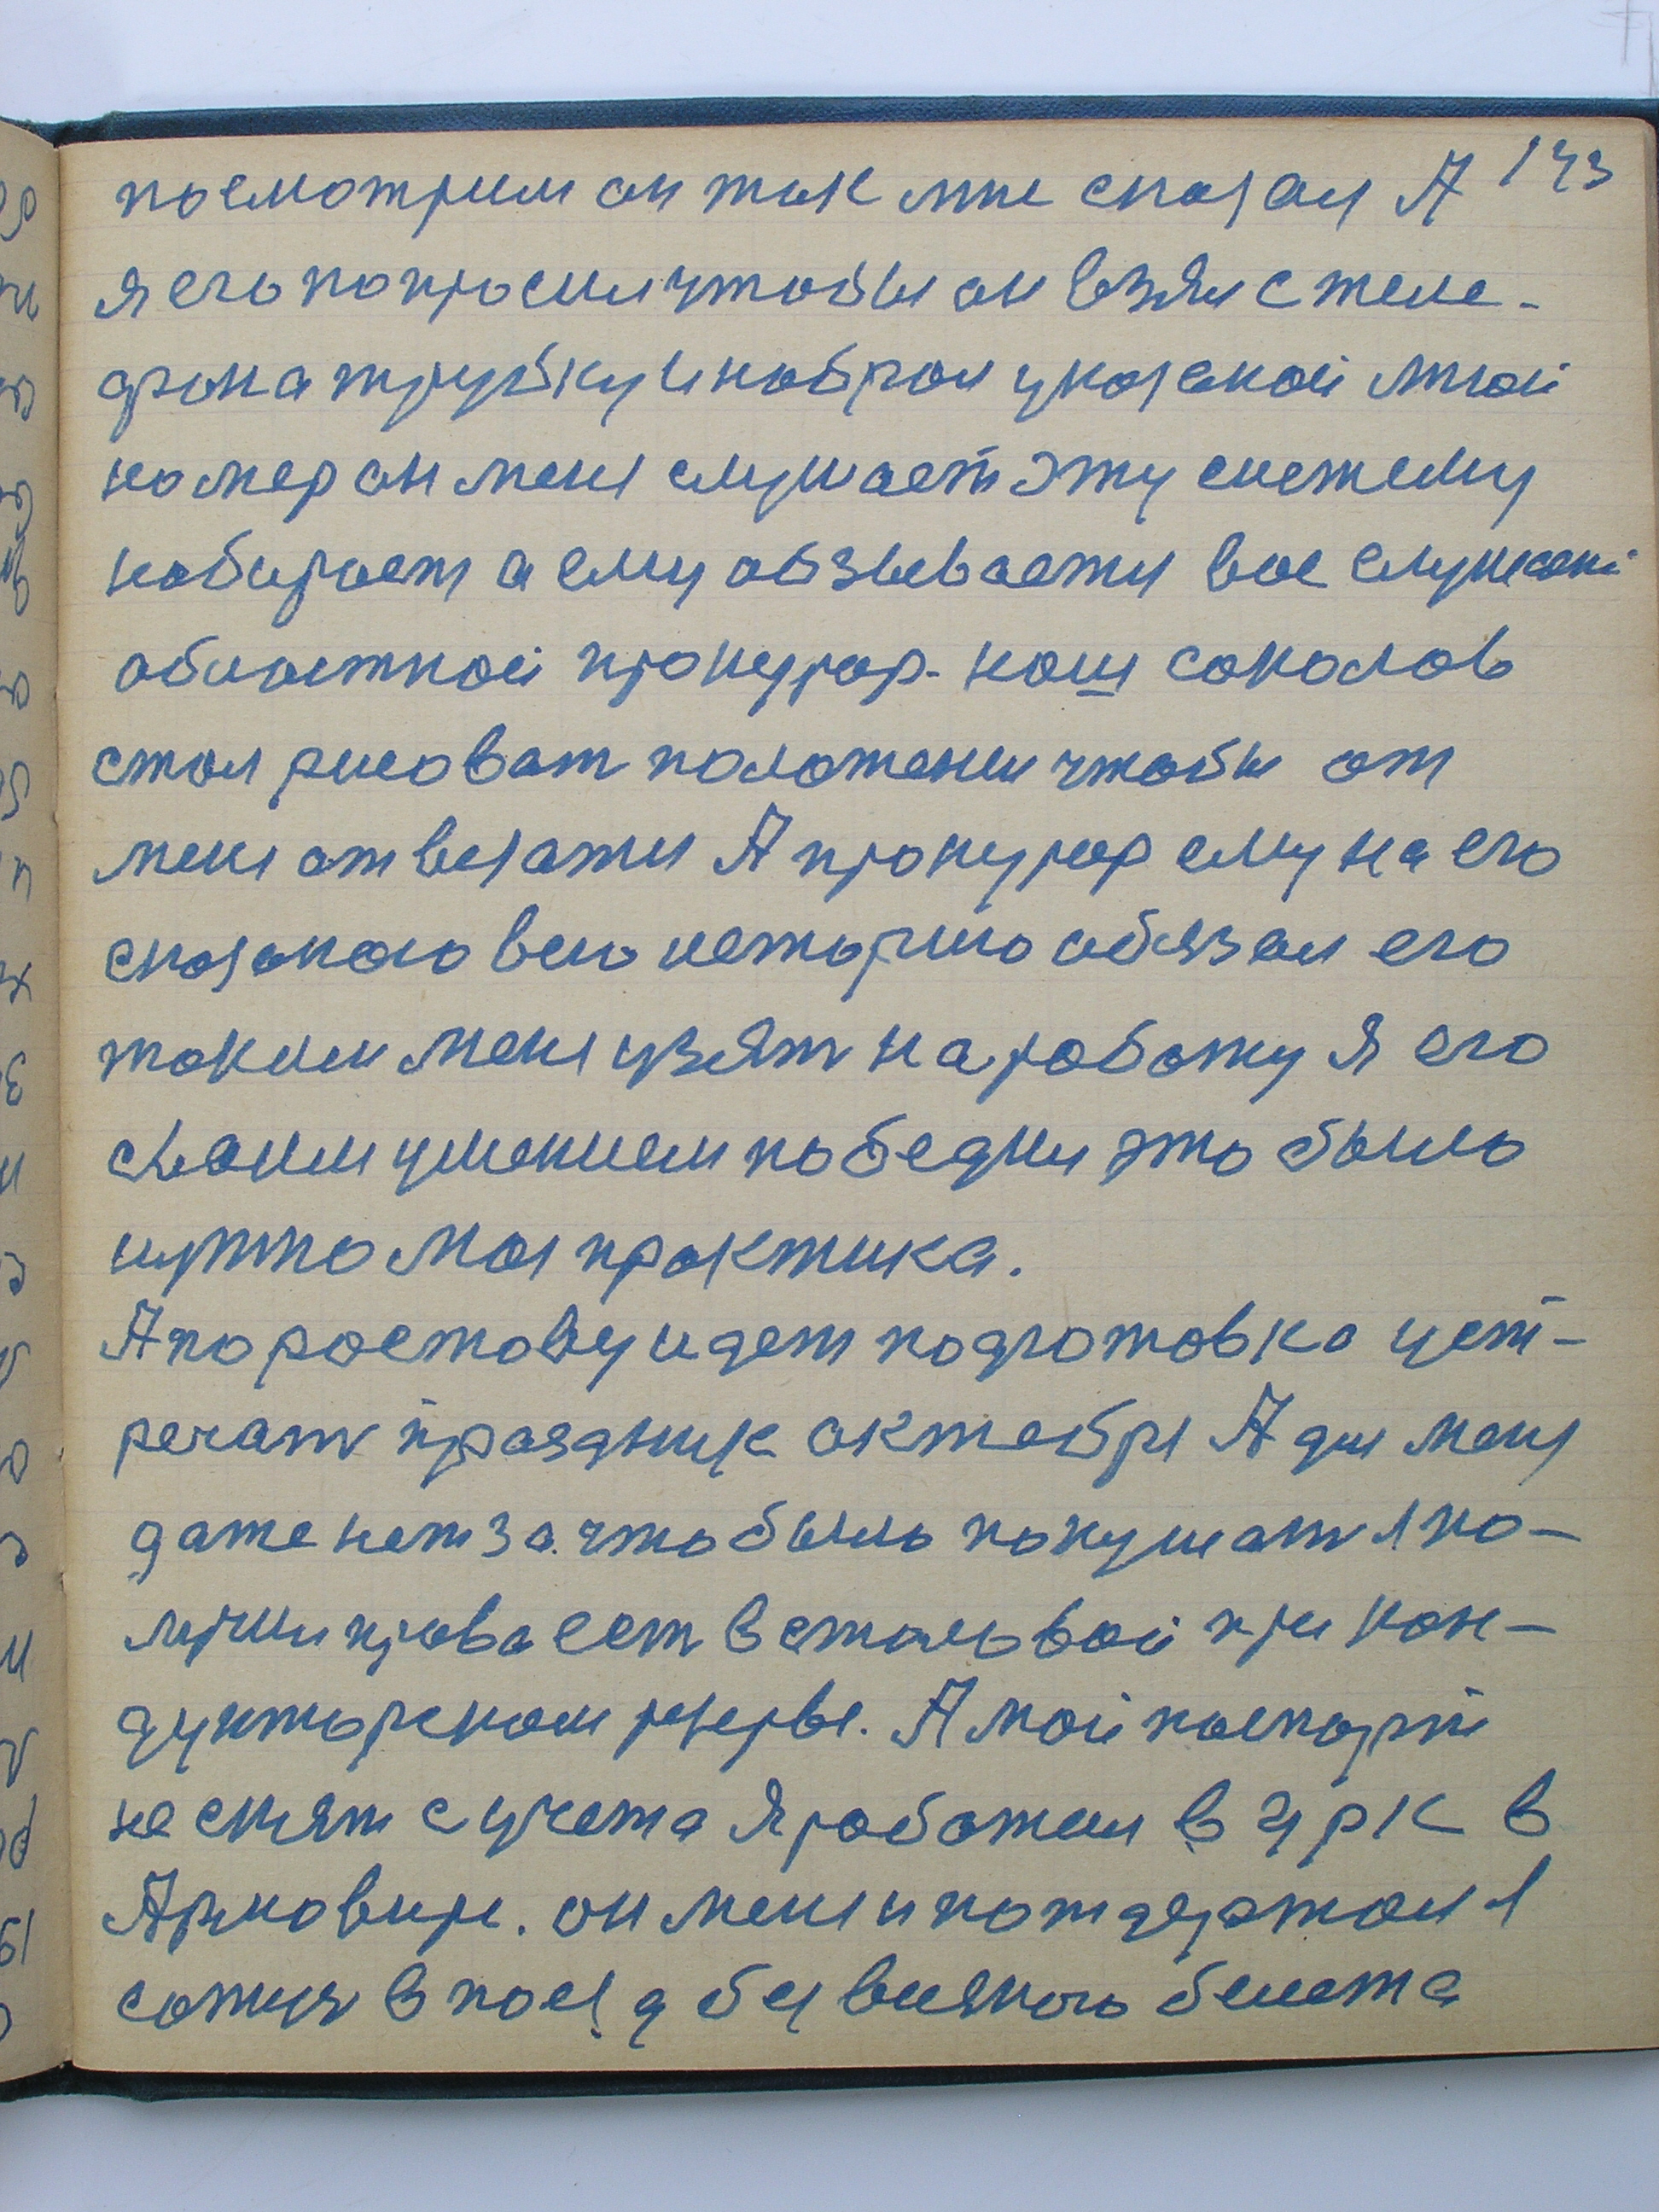 143
посмотрим он так мне сказал А
я его попросил чтобы он взял с теле-
фона трубку и набрал указаной мной
номер он меня слушает эту систему
набирает а ему обзывается вас слушает
областной прокурор. наш соколов
стал рисоват положения чтобы от
меня отвязатся А прокурор ему на его
сказаного всю историю обязал его
таким меня узят на работу я его
своим умением победил это было
нужно моя практика.
А по ростову идет подготовка уст-
речат праздник октября А для меня
даже нет за что было покушат я по-
лучил права ест в столовой при кон-
дукторском резерве. А мой паспорт
не снят с учета я работал в ЦРК в
Армовире. он меня и потдержал я
сажуя в поезд без всякого билета